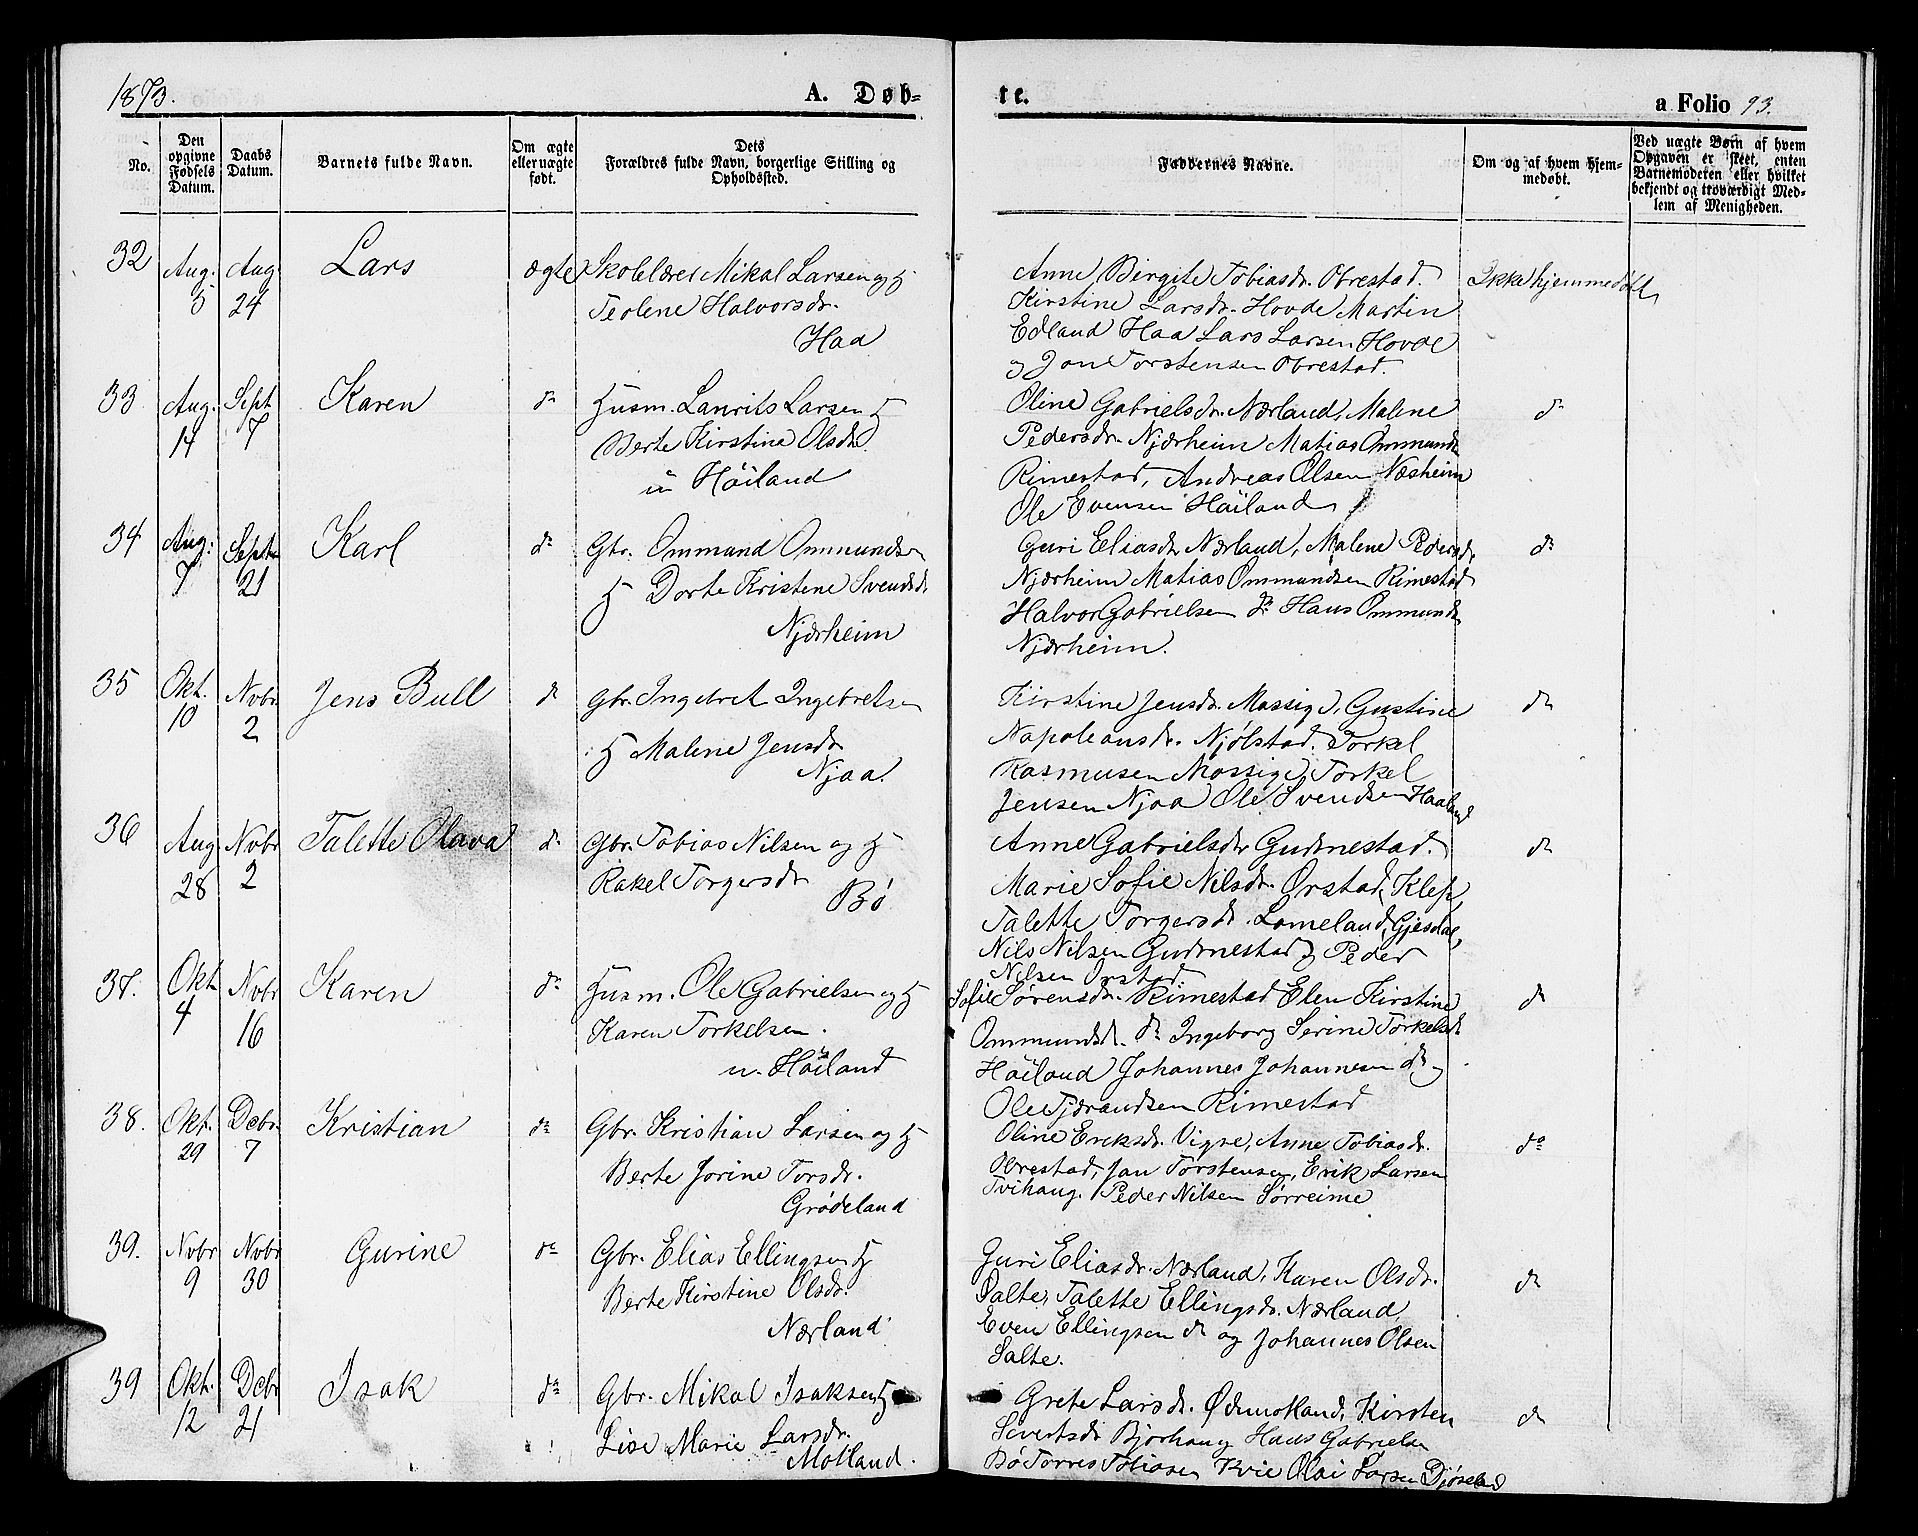 1873.
A. Døb-
te.
a Folio 93.
No.
Den opgivne Fødsels Datum.
Daabs Datum.
Barnets fulde Navn.
Om ægte eller uægte født.
Dets Forældres fulde Navn, borgerlige Stilling og Opholdssted.
Faddernes Navne.
Om og af hvem hjem-medøbt.
Ved uægte Børn af hvem Opgaven er skeet, enten Barnemoderen eller hvilket bekjendt og troværdigt Med-lem af Menigheden.
32 Aug. 5 Aug 24 Lars ægte Skolelærer Mikal Larsen og H
Teolene Halvorsdr.
Haa
Anne Birgite Tobiasdr. Obrestad.
Kirstine Larsdr. Hovde Martin
Edland Haa Lars Larsen Hovde
og Jon Torstensen Obrestad.
Ikke hjemmedøbt
33 Aug. 14 Sept 7 Karen do Husm. Laurits Larsen H
Berte Kirstine Olsdr.
u Höiland
Oline Gabrielsdr. Nærland, Malene
Pedersdr. Njærheim Matias Ommunds
Rimestad, Andreas Olsen Næsheim
Ole Evensen Höiland
do
34 Aug: 7 Septr 21 Karl do Gbr. Ommund Ommundsen
H Dorte Kristene Svendsd.
Njærheim
Guri Eliasdr Nærland, Malene Pedersd.
Njærheim Matias Ommundsen Rimestad
Halvor Gabrielsen do Hans Ommunds
Njærheim.
do
35 Okt. 10 Nvbr 2 Jens Bull do Gbr. Ingebret Ingebretsen
H Malene Jensdr
Njaa.
Kirstine Jensdr. Mossige, Gustine
Napoleonsdr. Njølstad. Torkel
Rasmusen Mossige Torkel
Jensen Njaa Ole Svendsen Haaland
do
36 Aug 28 Nvbr 2 Talette Olava do Gbr. Tobias Nilsen og H
Rakel Torgersdr
Bø
Anne Gabrielsdr Gudmestad.
Marie Sofie Nilsdr. Orstad, Klep,
Talette Torgersdr. Lomeland, Gjesdal,
Nils Nilsen Gudmestad og Peder
Nilsen Orstad
do
37. Okt 4 Nvbr 16 Karen do Husm. Ole Gabrielsen og H
Karen Torkelsen.
u. Höiland
Sofie Sørensdr. Rimestad Elen Kirstine
Ommundsd. do Ingeborg Serine Torkelsd
Höiland Johannes Johannesen do og
Ole Tjærandsen Rimestad
do
38. Okt. 29 Dcbr. 7 Kristian do Gbr. Kristian Larsen og H
Berte Jorine Torsdr.
Grødeland
Oline Eriksdr. Vigre, Anne Tobiasdr.
Obrestad, Jan Torstensen, Erik Larsen
Tvihaug. Peder Nilsen Sørreime
do
39. Nvbr 9 Nvbr 30 Gurine do Gbr. Elias Ellingsen H
Berte Kirstine Olsdr.
Nærland
Guri Eliasdr. Nærland, Karen Olsdr.
Salte, Talette Ellingsdr. Nærland,
Even Ellingsen do og Johannes Olsen
Salte.
do
39 Okt. 12 Dcbr 21 Isak do Gbr. Mikal Isaksen H
Lise Marie Larsdr.
Motland.
Grete Larsdr. Ødemotland, Kirsten
Severtsdr Bjorhaug Hans Gabrielsen
Bø Torres Tobiasen Kvie Olai Larsen
do